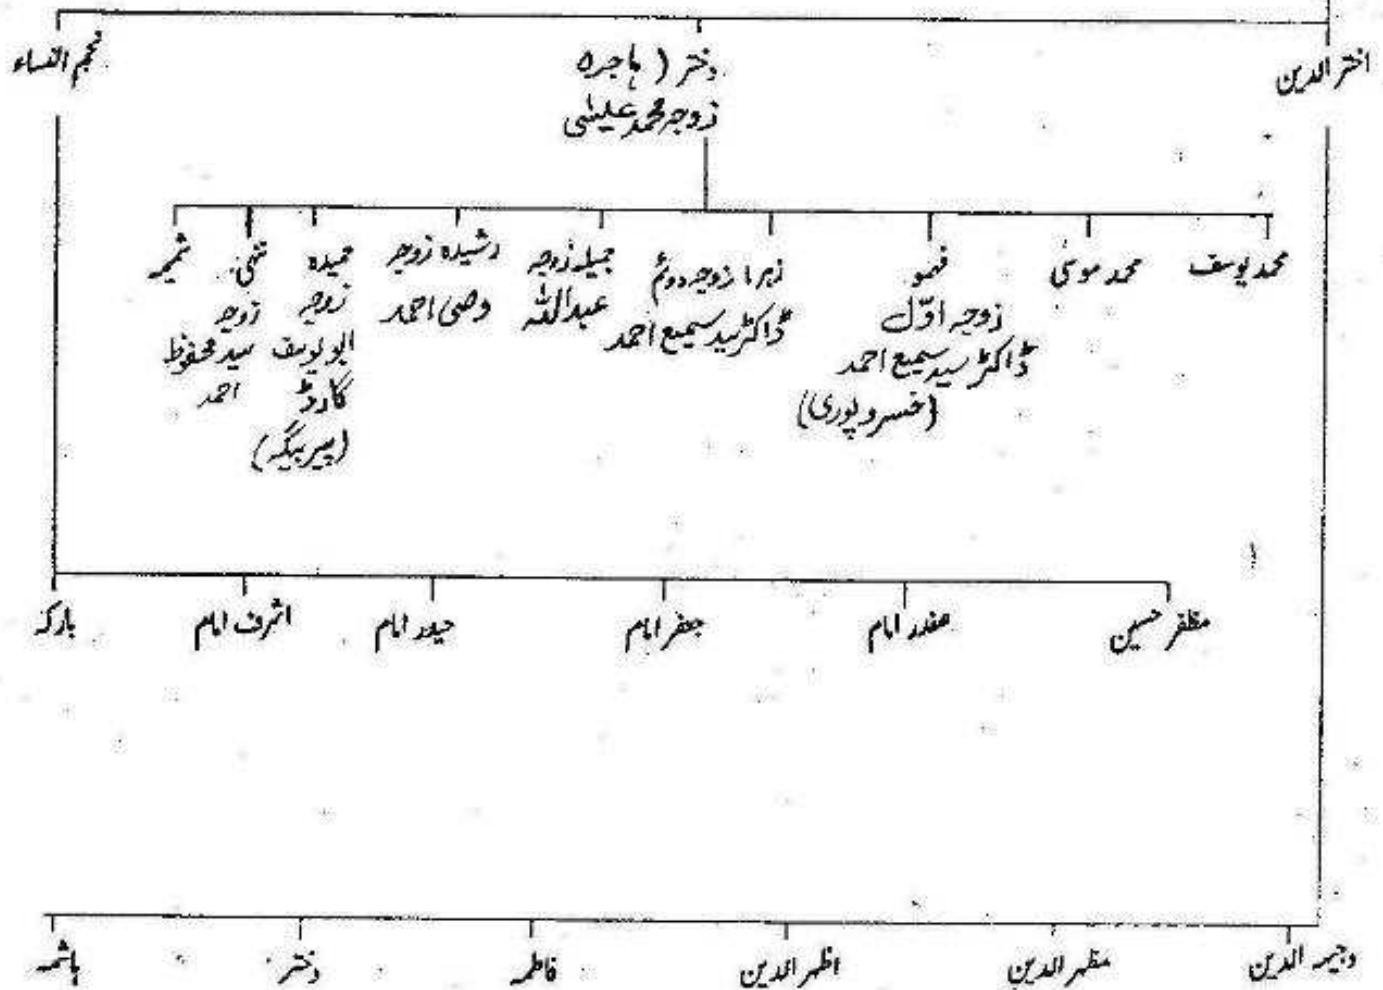 اختر الدین
دختر ( ہاجرہ
زوجہ محمد عیسٰی
نجم النساء
محمد یوسف
محمد موسٰی
فہمو
زوجہ اوّل
ڈاکٹر سید سمیع احمد
(خسرو پوری)
زہرا زوجہ دوئم
ڈاکٹر سید سمیع احمد
جمیلہ زوجہ
عبداللہ
رشیدہ زوجہ
وصی احمد
حمیدہ
زوجہ
ابو یوسف
گارڈ
(پیر بیگہ)
ننھی
زوجہ
سید محفوظ
احمد
مظفر حسین
صفدر امام
جعفر امام
حیدر امام
اشرف امام
بارکہ
وجیہ الدین
مظہر الدین
اظہر الدین
فاطمہ
دختر
ہاشمہ